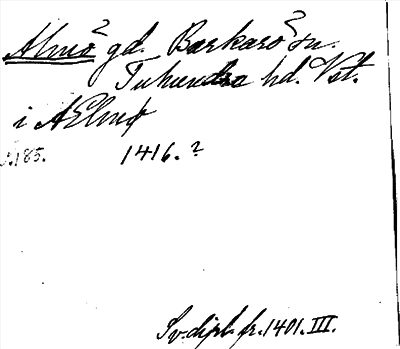 Almö? gd. Barkarö? sn.
Tuhundra hd. Vst.
i AElmø
s.185. 1416.?
Sv. dipl. fr. 1401. III.